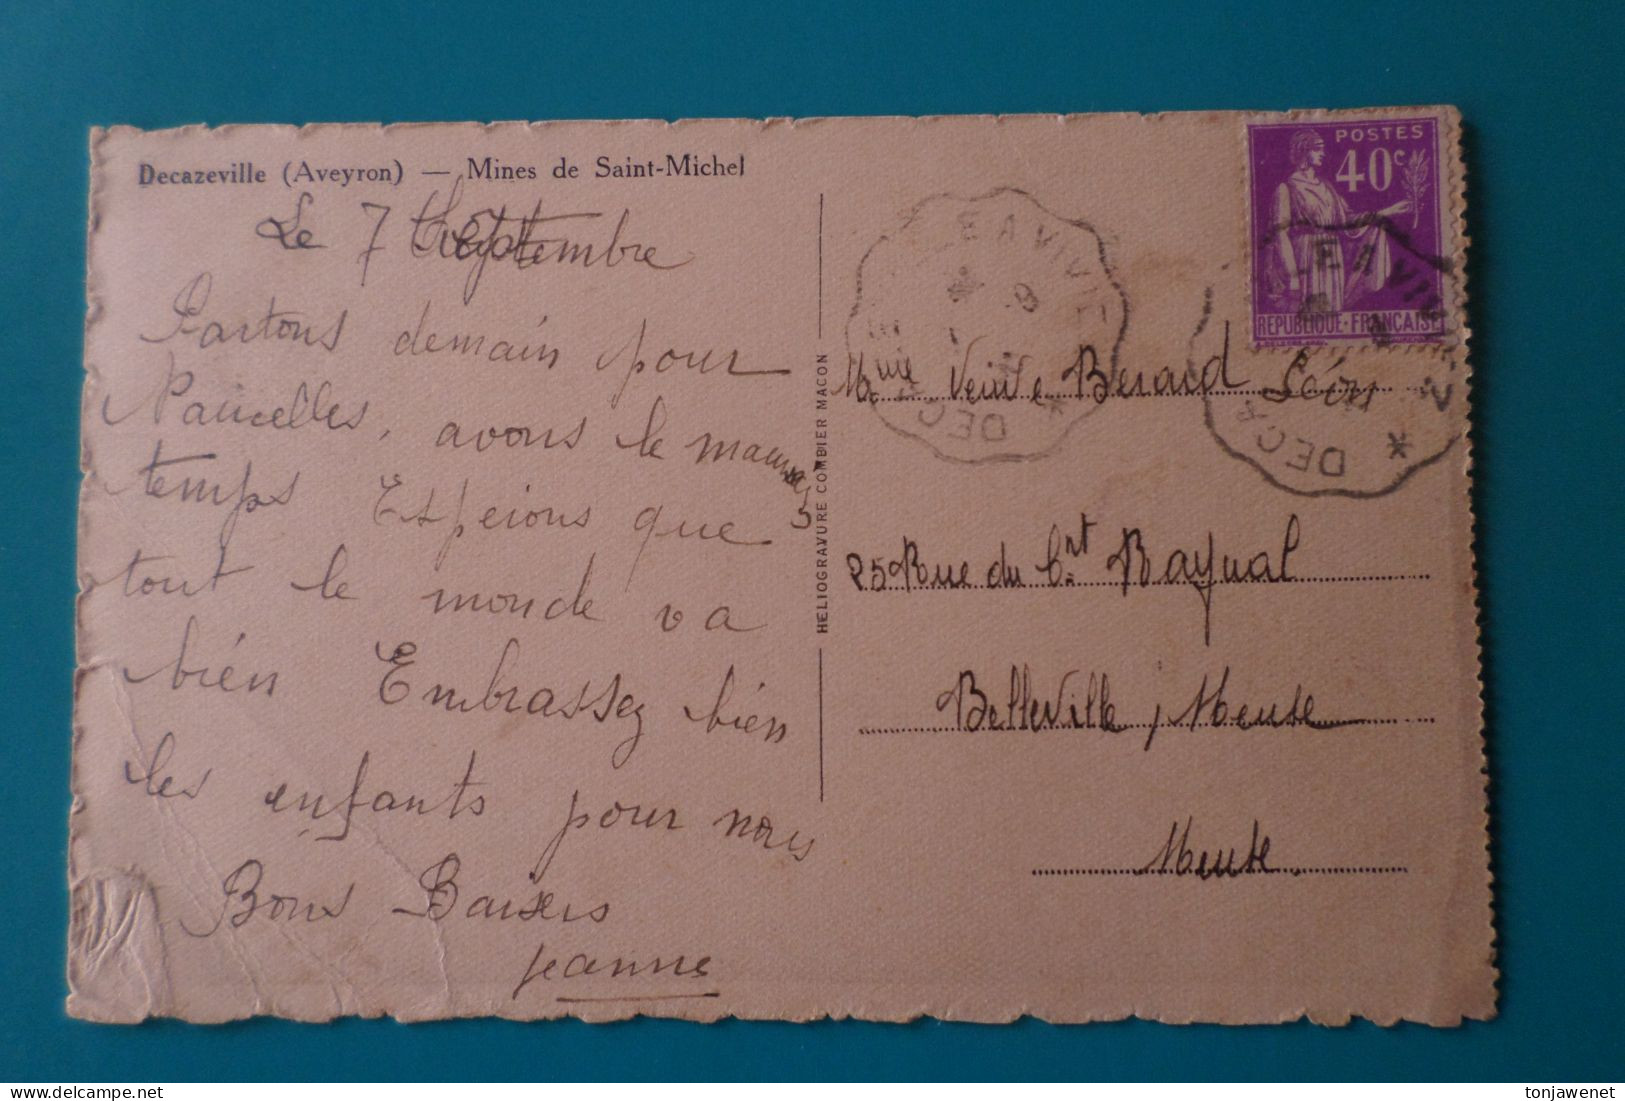 Decazeville (Aveyron) — Mines de Saint-Michel
Le 7 Septembre
Partons demain pour
avons le mauvais
temps Espérons que
tout le monde va
bien Embrassez bien
les enfants pour nous
Bons Baisers
Jeanne
HELIOGRAVURE COMBIER MACON
POSTES
40c
REPUBLIQUE-FRANÇAISE
E A VIVIE
DECAZE
E A VIVIE
DECA
Mme Veuve Berard Léon
25 Rue du Cnt Raynal
Belleville, Meuse
Meuse.
tonjawenet